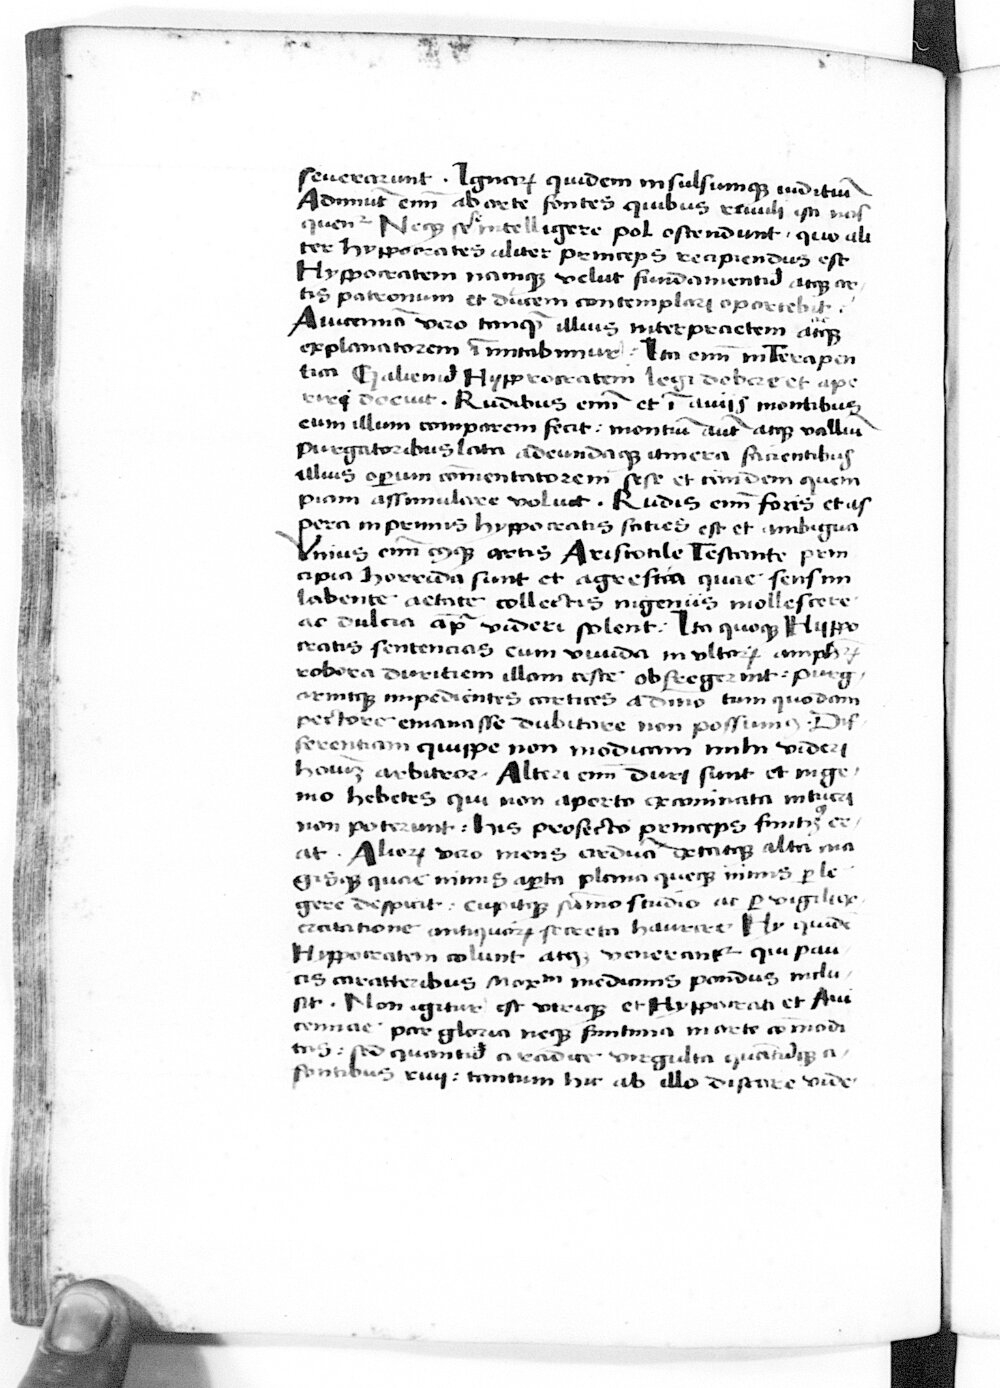 severarunt . Ignarꝝ quidem insulsumqꝫ iuditiū
Adimūt enī ab arte fontes quibus riuuli isti nas
quenr̄ Neqꝫ se intelligere pol ostendunt · quo ali
ter hyppocrates aliter princeps recipiendus est
Hyppocratem namqꝫ velut fundamentū atqꝫ ar-
tis patronum et ducem contemplari oportebit :
Auicennā vero tanqꝫ illius interpraetem atqꝫ
explanatorem īmitabimur : Ita enī in Terapen
tica Galienū Hypprocratem legi debere et ape
rireqꝫ docuit . Rudibus enī et ī auiis montibus
eum illum comparem fecit : montiū aūt atqꝫ valliū
purgatoribus lata adeundaqꝫ itinera facientibus
illius operum cōmentatorem sese et tandem quem
piam assimulare voluit . Rudis enī foris et as
pera inprimis hyppocratis facies est et ambigua
Vnius enī cuiqꝫ artis Aristotile Testante prin
cipia horrida sunt et agrestia quae sensim
labente aetate collectis ingeniis mollescere
ac dulcia apꝫ videri solent : Ita quoqꝫ Hyppo
cratis sentencias cum viuida multorꝝ amphꝝ
robora duritiem illam teste obfregerint : purg-
arintqꝫ impedientes cortices a diuo tum quodam
pectore emanasse dubitare non possumꝰ . Dif-
ferentiam quippe non modicam mihi videri
houꝫ arbitror . Alteri enī duri sunt et inge-
nio hebetes qui non aperto examinata intueri
non poterunt : his profecto princeps finitꝫ er-
at . Aliorꝝ vero mens ardua dextatqꝫ alta ma
gisqꝫ quae nimis aperta plana queqꝫ nimis perle
gere despicit : cupitqꝫ sūmo studio ac per vigilijs
cratatione antiquorꝝ secreta haurire Hy quidē
Hyppocratem colunt atqꝫ venerantr̄ qui pau-
cis caratteribus maxm̄ medicinis pondus inclu-
sit . Non igitur est vtriqꝫ et Hyppocrati et Aui
cennae par gloria neqꝫ finitima in arte cōmodi
tas : sed quantū a radice virgulta quātūqꝫ a-
fontibus riui : tantum hic ab illo distare vide-